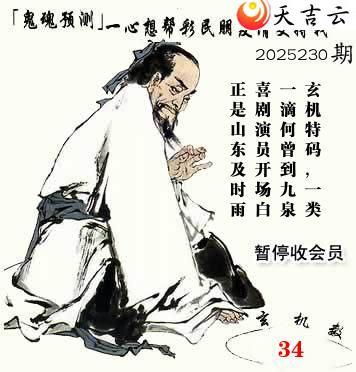 天吉云
「鬼魂预测」一心想帮彩民朋
2025230期
玄机特码，一类
一滴何曾到九泉
喜剧演员开场白
正是山东及时雨
暂停收会员
玄机
34